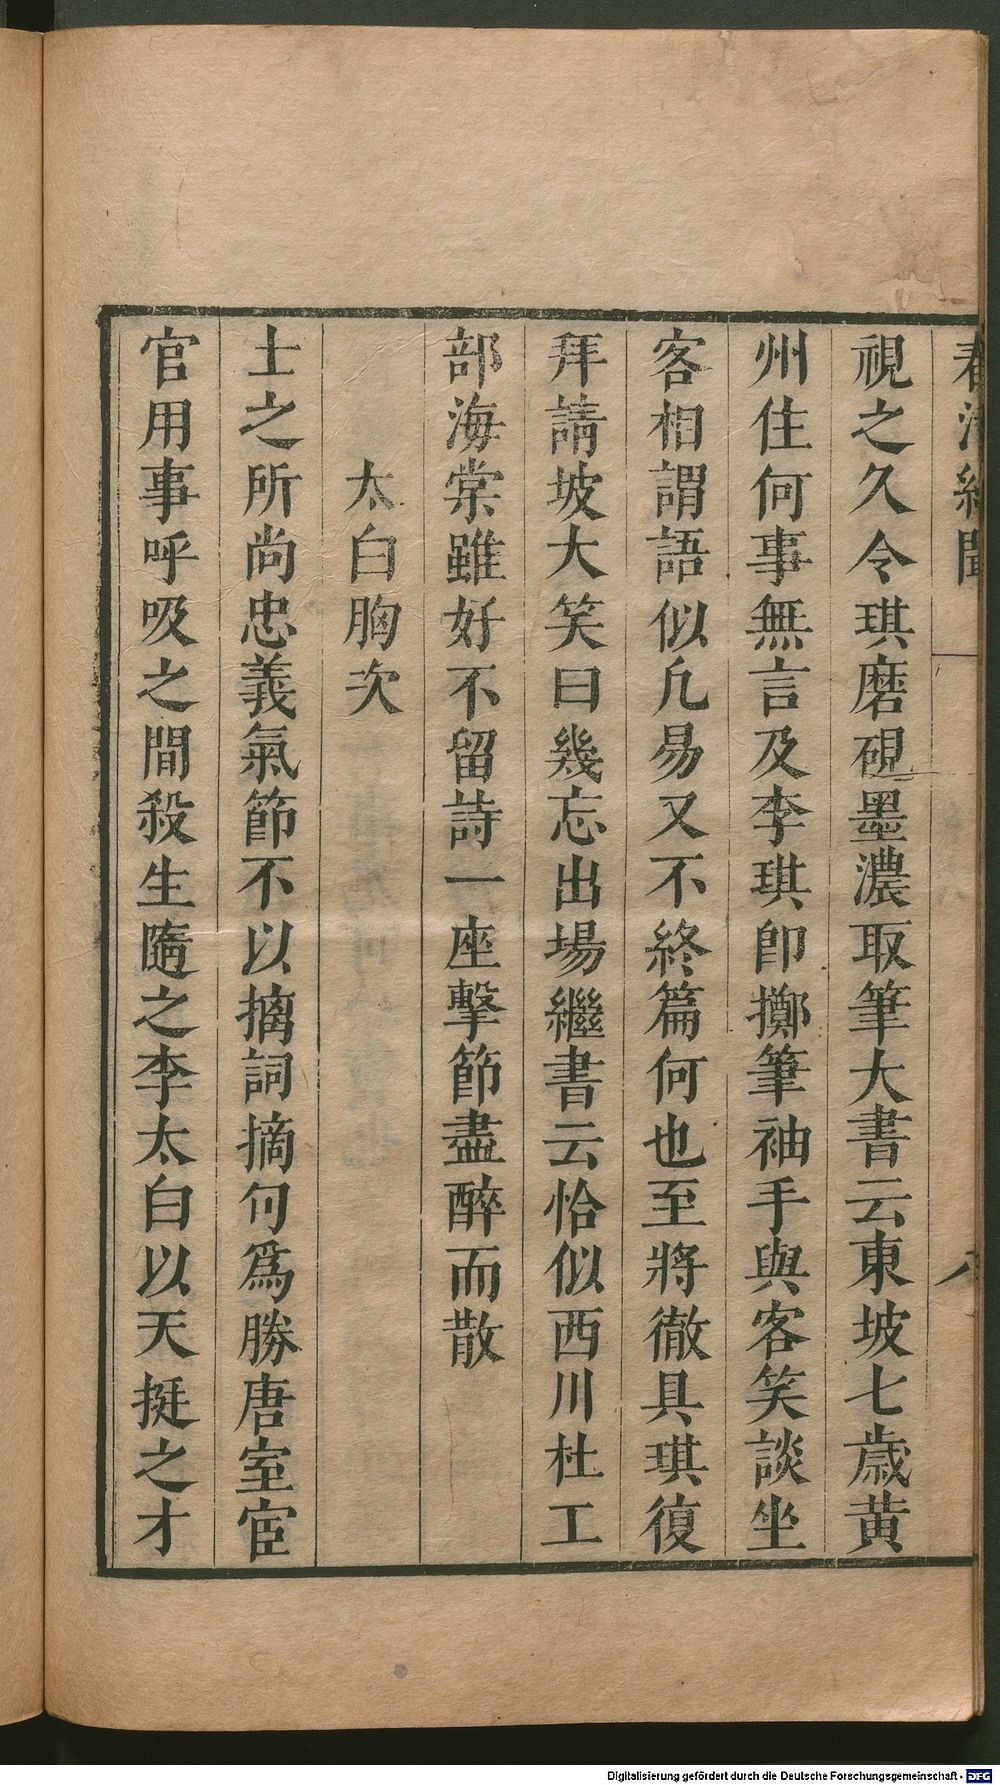 視之久令琪磨硯墨濃取筆大書云東坡七歲黃
州住何事無言及李琪卽擲筆袖手與客笑談坐
客相謂語似凢易又不終篇何也至將徹具琪復
拜請坡大笑曰幾忘出場繼書云恰似西川杜工
部海棠雖好不留詩一座擊節盡醉而散
太白胸次
士之所尚忠義氣節不以摛詞摘句爲勝唐室宦
官用事呼吸之間殺生隨之李太白以天挺之才
Digitalisierung gefördert durch die Deutsche Forschungsgemeinschaft - DFG